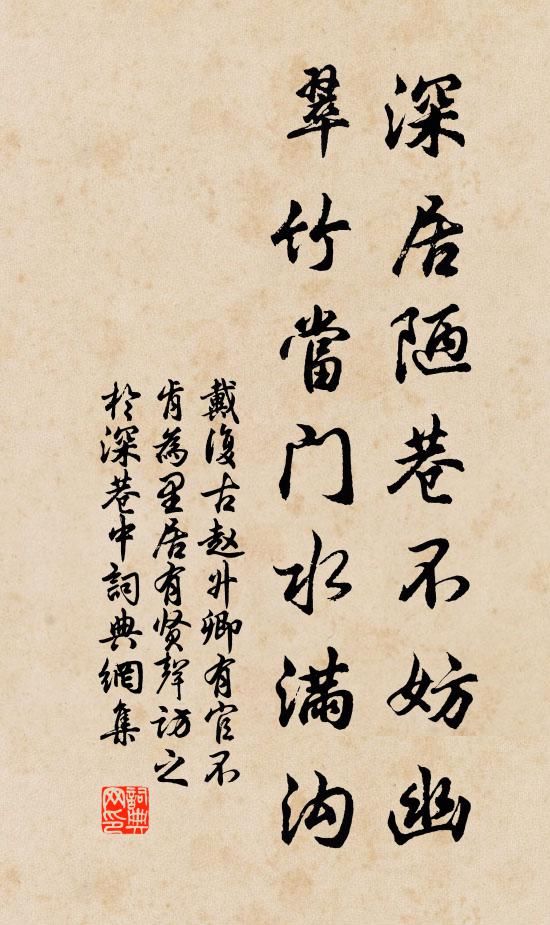 深居陋巷不妨幽
翠竹當门水满沟
戴復古赵升卿有官不
肯為里居有贤聲访之
於深巷中詞典網集
詞典网印